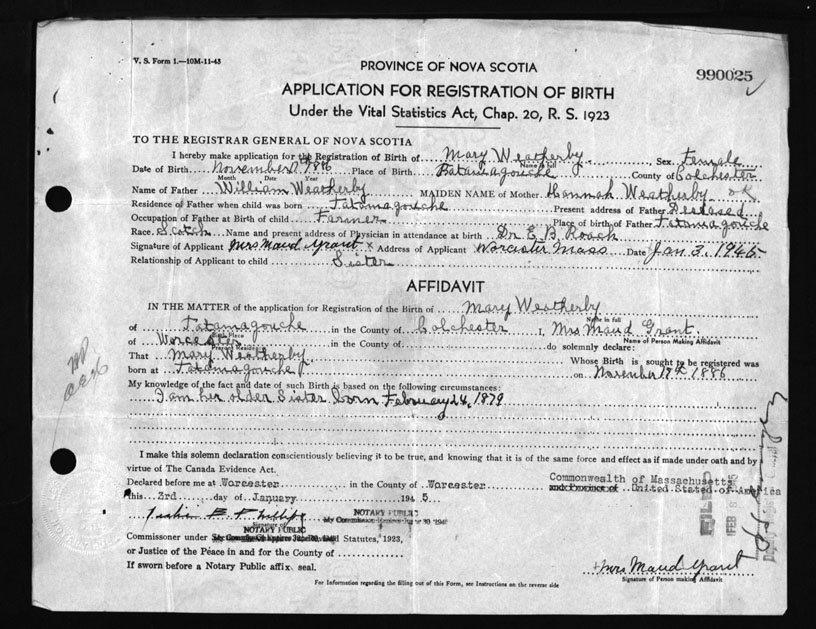 V. S. Form 1.—10M-11-43
PROVINCE OF NOVA SCOTIA
990025
APPLICATION FOR REGISTRATION OF BIRTH
Under the Vital Statistics Act, Chap. 20, R. S. 1923
TO THE REGISTRAR GENERAL OF NOVA SCOTIA
I hereby make application for the Registration of Birth of Mary Weatherby Sex Female
Name in full
Date of Birth November 18th 1886 Place of Birth Tatamagouche County of Colchester
Month Date Year
Name of Father William Weatherby MAIDEN NAME of Mother Hannah Weatherby OK
Residence of Father when child was born Tatamagouche Present address of Father Deceased
Occupation of Father at Birth of child Farmer Place of birth of Father Tatamagouche
Race Scotch Name and present address of Physician in attendance at birth Dr. E. B. Roach
Signature of Applicant Mrs Maud Grant x Address of Applicant Worcester Mass Date Jan 3, 1945
Relationship of Applicant to child Sister
AFFIDAVIT
IN THE MATTER of the application for Registration of the Birth of Mary Weatherby
Name in full
of Tatamagouche in the County of Colchester I, Mrs Maud Grant
Birth Place
Name of Person Making Affidavit
of Worcester in the County of do solemnly declare:
Present Residence
That Mary Weatherby Whose Birth is sought to be registered was
born at Tatamagouche on November 18th 1886
My knowledge of the fact and date of such Birth is based on the following circumstances:
I am her older Sister born February 24, 1879
I make this solemn declaration conscientiously believing it to be true, and knowing that it is of the same force and effect as if made under oath and by
virtue of The Canada Evidence Act.
Declared before me at Worcester in the County of Worcester Commonwealth of Massachusetts
and Province of United States of America
this 3rd day of January 1945
E Phillips NOTARY PUBLIC
Signature of
NOTARY PUBLIC
Commissioner under Statutes, 1923,
or Justice of the Peace in and for the County of
If sworn before a Notary Public affix seal.
FILED
FEB 8
Mrs Maud Grant
Signature of Person making Affidavit
For Information regarding the filling out of this Form, see Instructions on the reverse side